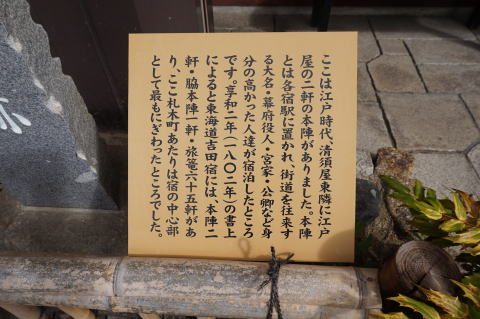 ここは江戸時代、清須屋東隣に江戸
屋の二軒の本陣がありました。本陣
とは各宿駅に置かれ、街道を往来す
る大名・幕府役人・宮家・公卿など身
分の高かった人達が宿泊したところ
です。享和二年(一八〇二年)の書上
によると東海道吉田宿には、本陣二
軒・脇本陣一軒・旅篭六十五軒があ
り、ここ札木町あたりは宿の中心部
として最もにぎわったところでした。